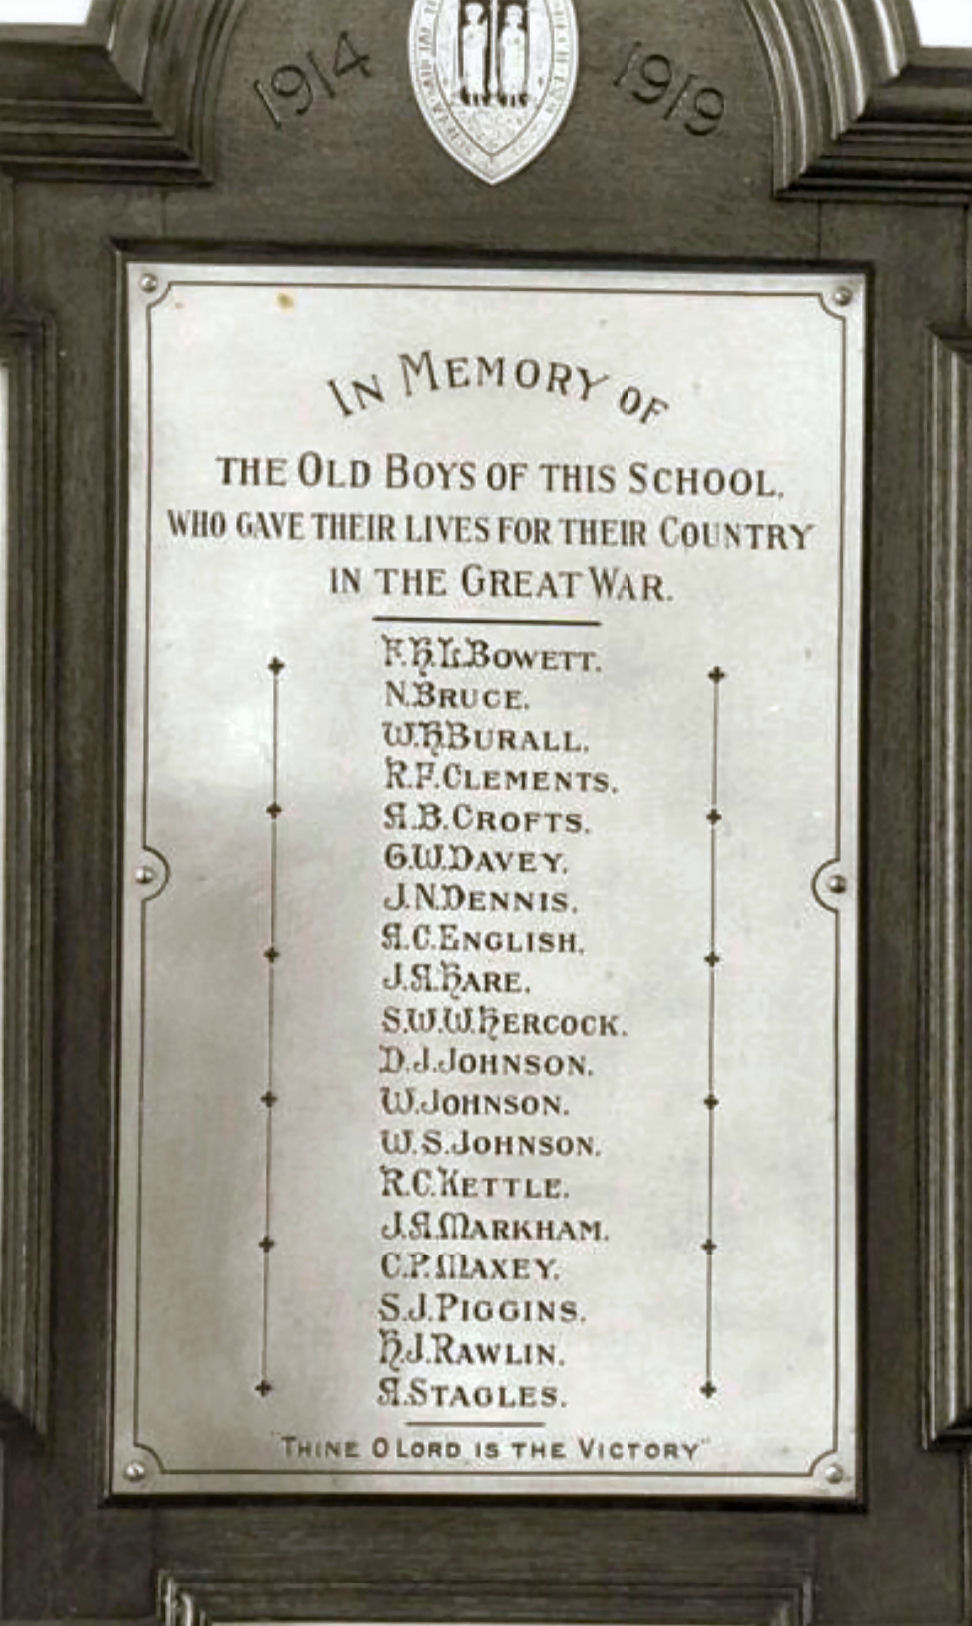 1914 1919
IN MEMORY OF
THE OLD BOYS OF THIS SCHOOL,
WHO GAVE THEIR LIVES FOR THEIR COUNTRY
IN THE GREAT WAR.
F.H.L.BOWETT.
N.BRUCE.
W.H.BURALL.
R.F.CLEMENTS.
A.B.CROFTS.
G.W.DAVEY.
J.N.DENNIS.
A.C.ENGLISH.
J.A.HARE.
S.W.W.HERCOCK.
D.J.JOHNSON.
W.JOHNSON.
W.S.JOHNSON.
R.C.KETTLE.
J.A.MARKHAM.
C.P.MAXEY.
S.J.PIGGINS.
H.J.RAWLIN.
A.STAGLES.
"THINE O LORD IS THE VICTORY"